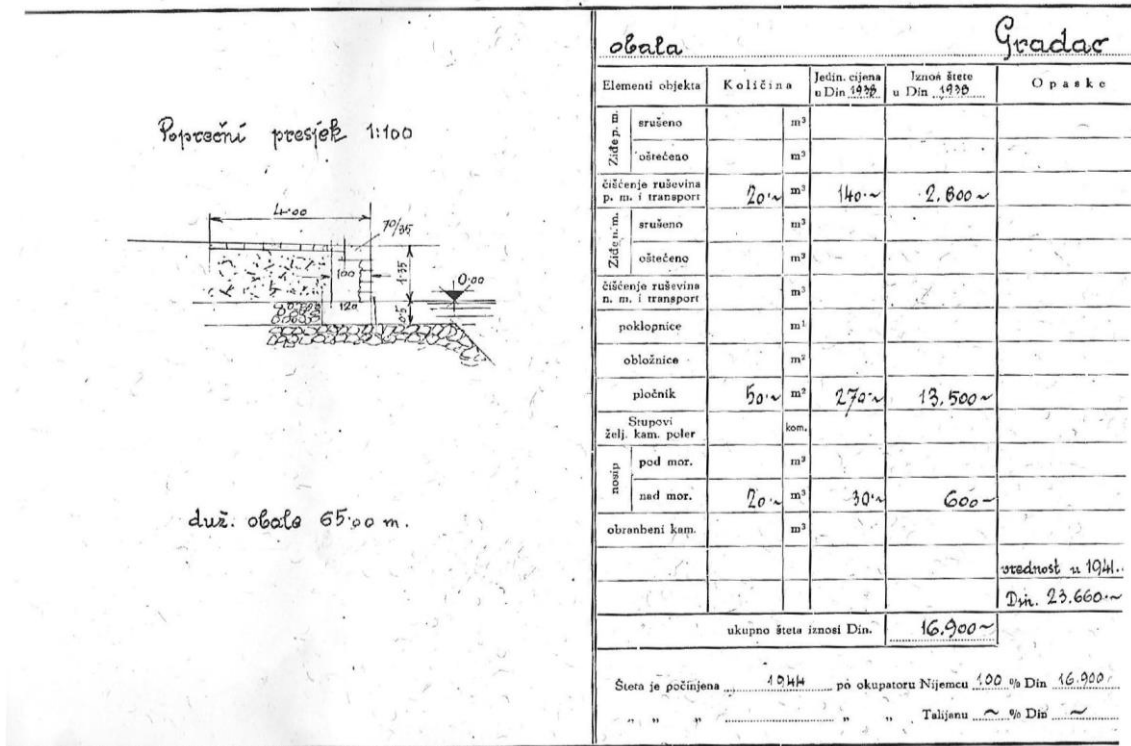 Poprečni presjek 1:100
4·00
70/35
100
1·35
0·00
120
0·5
duž. obale 65·00 m.
obala Gradac
Elementi objekta Količina Jedin. cijena u Din 1938 Iznos štete u Din 1938 Opaske
Ziđe p. m. srušeno m³
oštećeno m³
čišćenje ruševina p. m. i transport 20·~ m³ 140·~ 2.800~
Ziđe n. m. srušeno m³
oštećeno m³
čišćenje ruševina n. m. i transport m³
poklopnice m¹
obložnice m²
pločnik 50·~ m² 270·~ 13.500~
Stupoviželj. kam. poler kom.
nasip pod mor. m³
nad mor. 20·~ m³ 30·~ 600~
obranbeni kam. m³
vrednost u 1941.
Din. 23.660·~
ukupno šteta iznosi Din. 16.900~
Šteta je počinjena 1944 po okupatoru Nijemcu 100 % Din 16.900
„ „ „ „ „ Talijanu ~ % Din ~